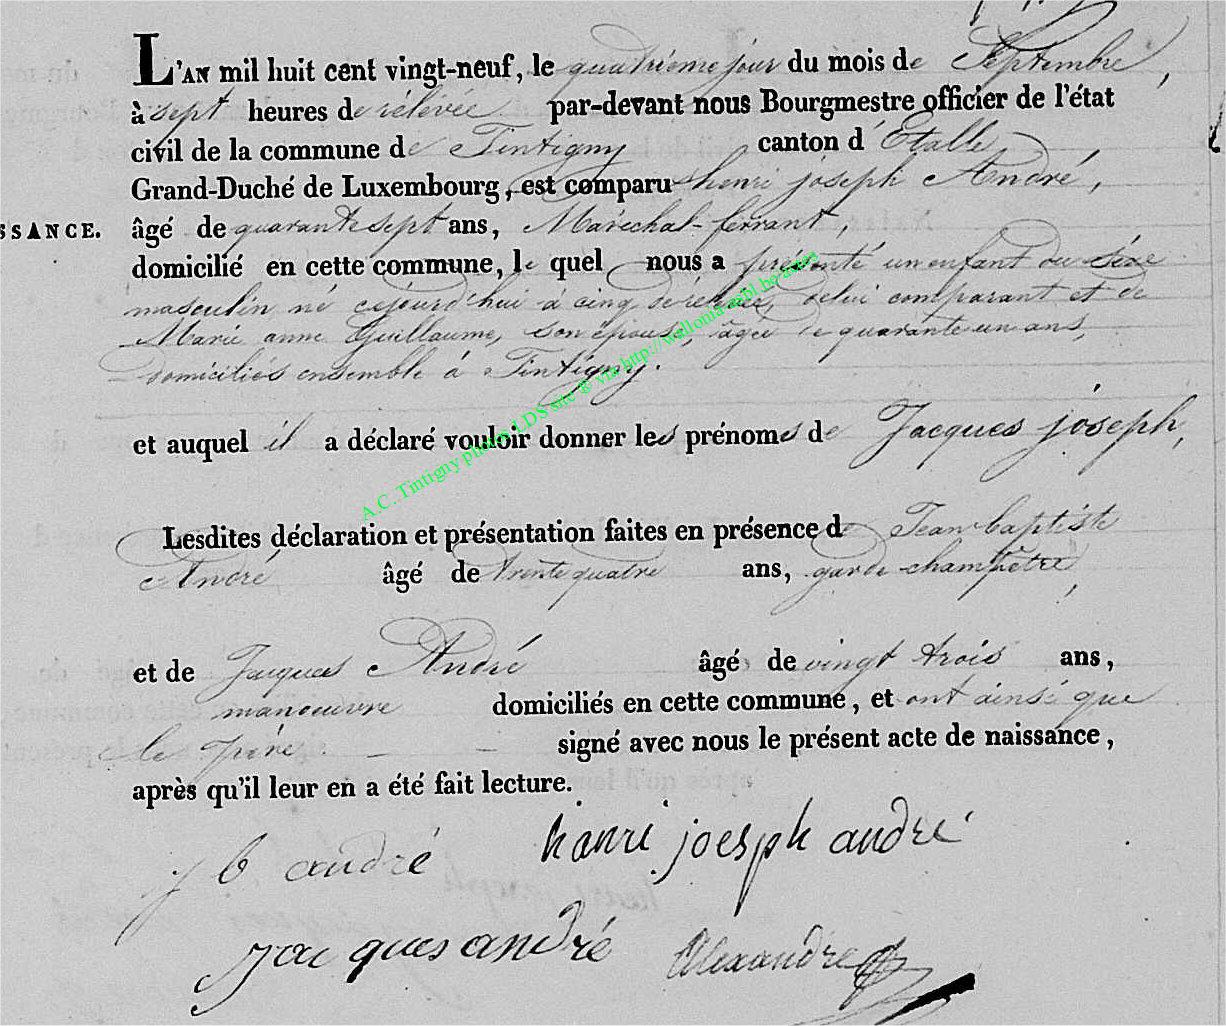 L'AN mil huit cent vingt-neuf, le quatrième jour du mois de Septembre,
à sept heures de rélévée par-devant nous Bourgmestre officier de l'état
civil de la commune de Tintigny canton d'Etalle,
Grand-Duché de Luxembourg, est comparu henri joseph André,
SSANCE. âgé de quarante sept ans, Maréchal-ferrant,
domicilié en cette commune, le quel nous a présenté un enfant du séxe
masculin né cejourd'hui à cinq de rélévée, de lui comparant et de
Marie anne Guillaume, son épouse, âgée de quarante un ans,
domiciliés ensemble à Tintigny.
et auquel il a déclaré vouloir donner les prénoms de Jacques jóseph,
A.C. Tintigny photos LDS site @ via http://wallonia-asbl.be/actes
Lesdites déclaration et présentation faites en présence de Jean-baptiste
André âgé de trente quatre ans, garde-champêtre,
et de Jacques André âgé de vingt trois ans,
manoeuvre domiciliés en cette commune, et ont ainsi que
le père — — signé avec nous le présent acte de naissance,
après qu'il leur en a été fait lecture.
j b andré henri joesph andre
jacques andré Alexandre